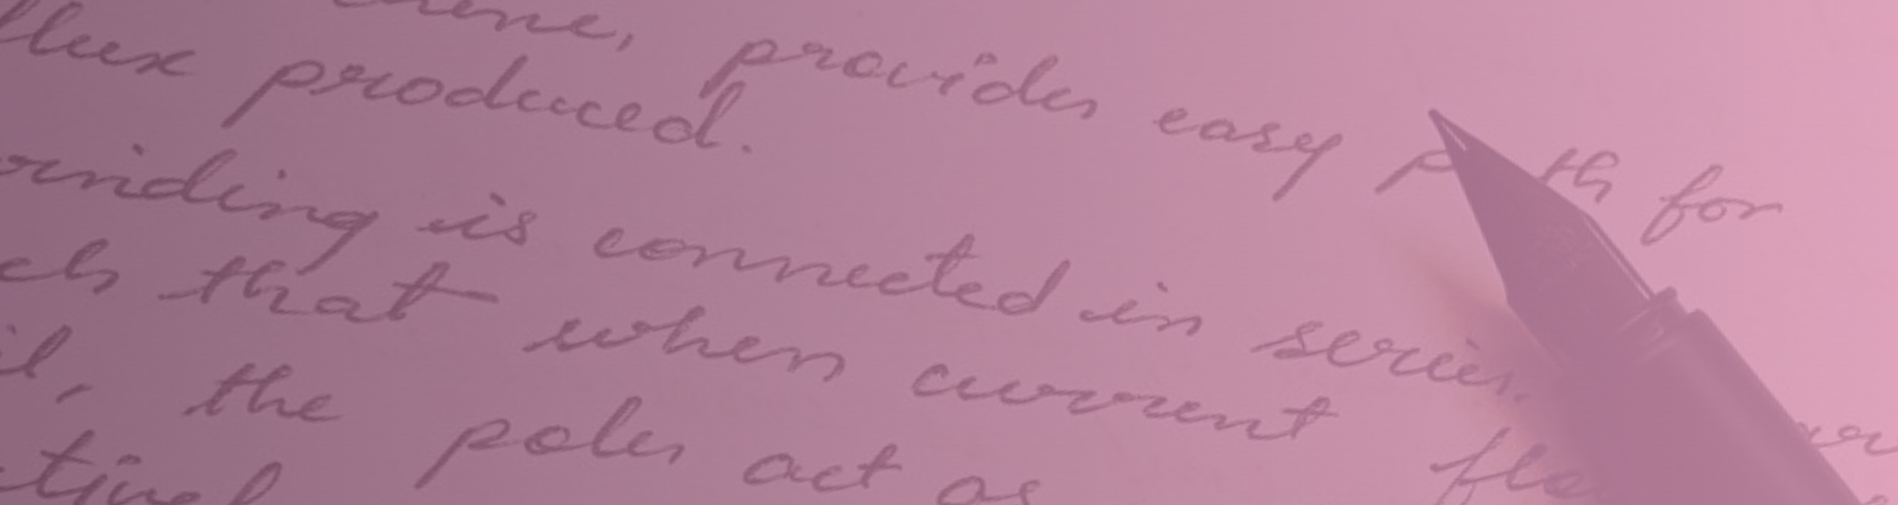 provides easy p th for
flux produced.
winding is connected in series.
ch that when current flo
il, the poles act as